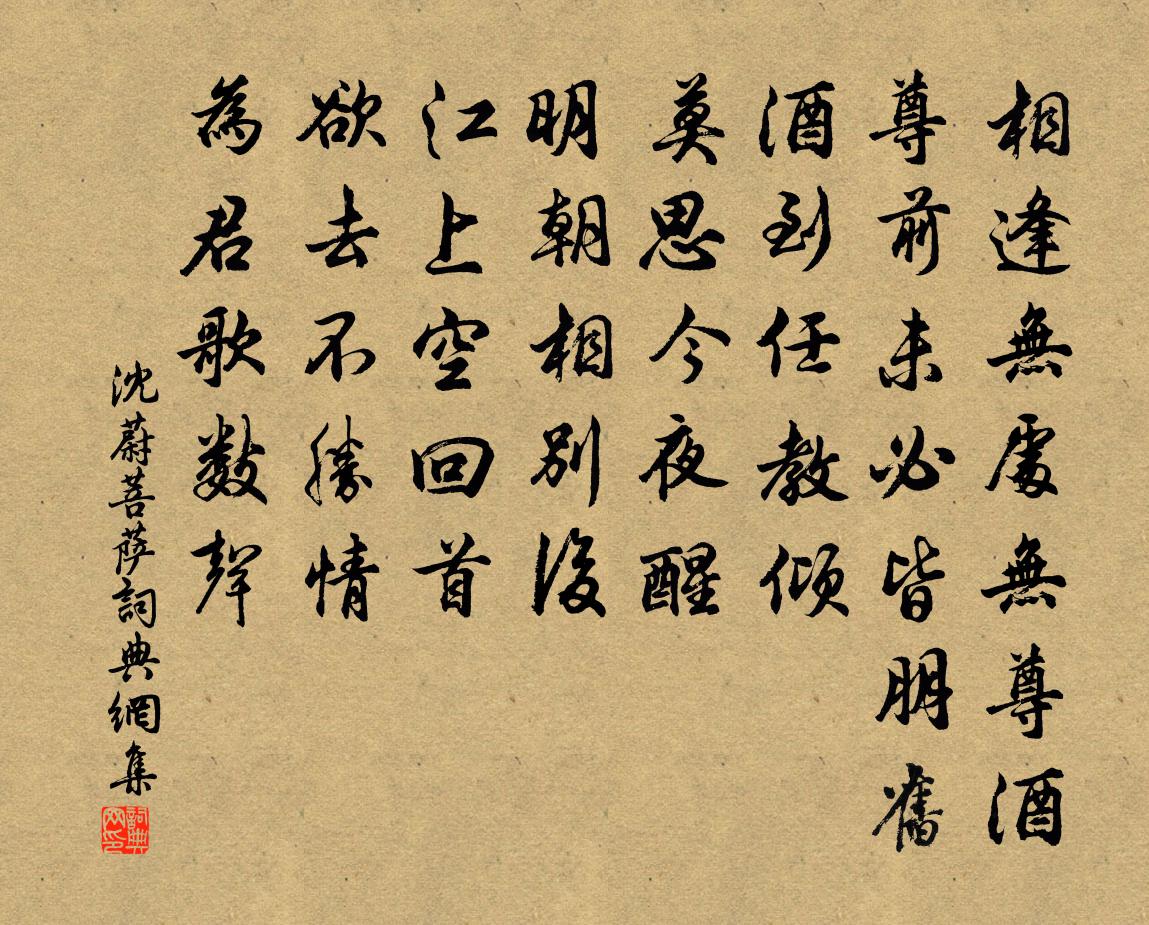 相逢無處無尊酒
尊前未必皆朋舊
酒到任教傾
莫思今夜醒
明朝相別後
江上空回首
欲去不勝情
為君歌數聲
沈蔚菩薩詞典網集
詞典網印